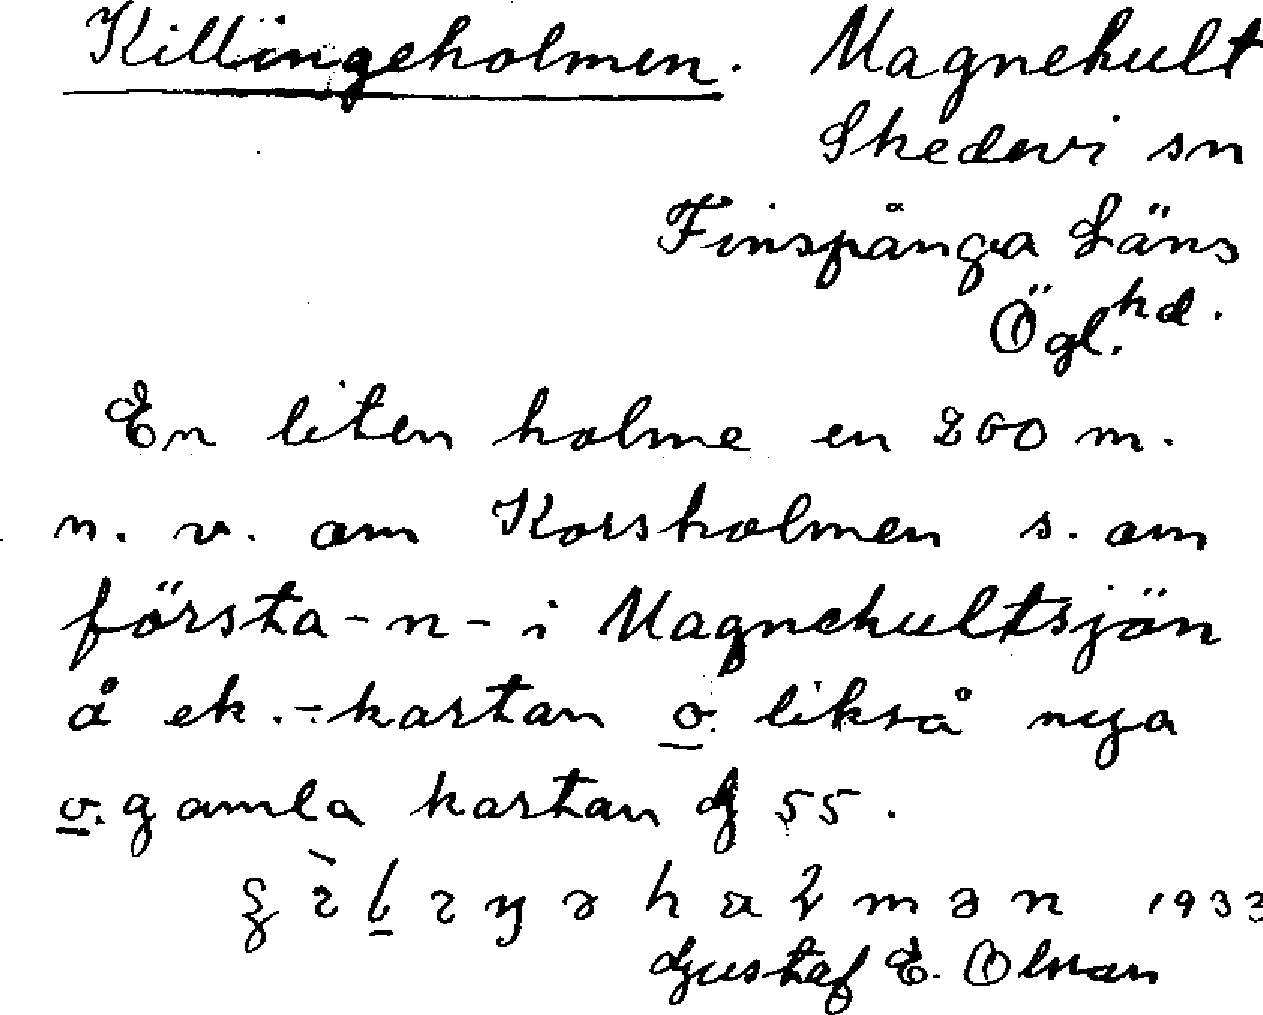 Killingeholmen. Magnehult
Skedevi sn
Finspånga Läns
hd.
Ögl.
En liten holme en 200 m.
n. v. om Korsholmen s. om
första - n - i Magnehultsjön
å ek. - kartan o. likså nya
o. gamla kartan G 55.
1933
Gustaf E. Olson